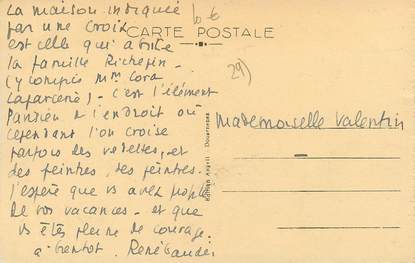 La maison indiquée
par une croix
est celle qui abrite
la famille Richepin.
(y compris Mme Cora
Laparcerie) - c'est l'élément
Parisien de l'endroit où
cependant l'on croise
parfois des vedettes, et
des peintres, des peintres.
J'espère que vs avez profité
de vos vacances - et que
vs êtes pleine de courage.
à bientôt. René
CARTE POSTALE
10 €
29)
Mademoiselle Valentin
Edition Anglil Douarnenez